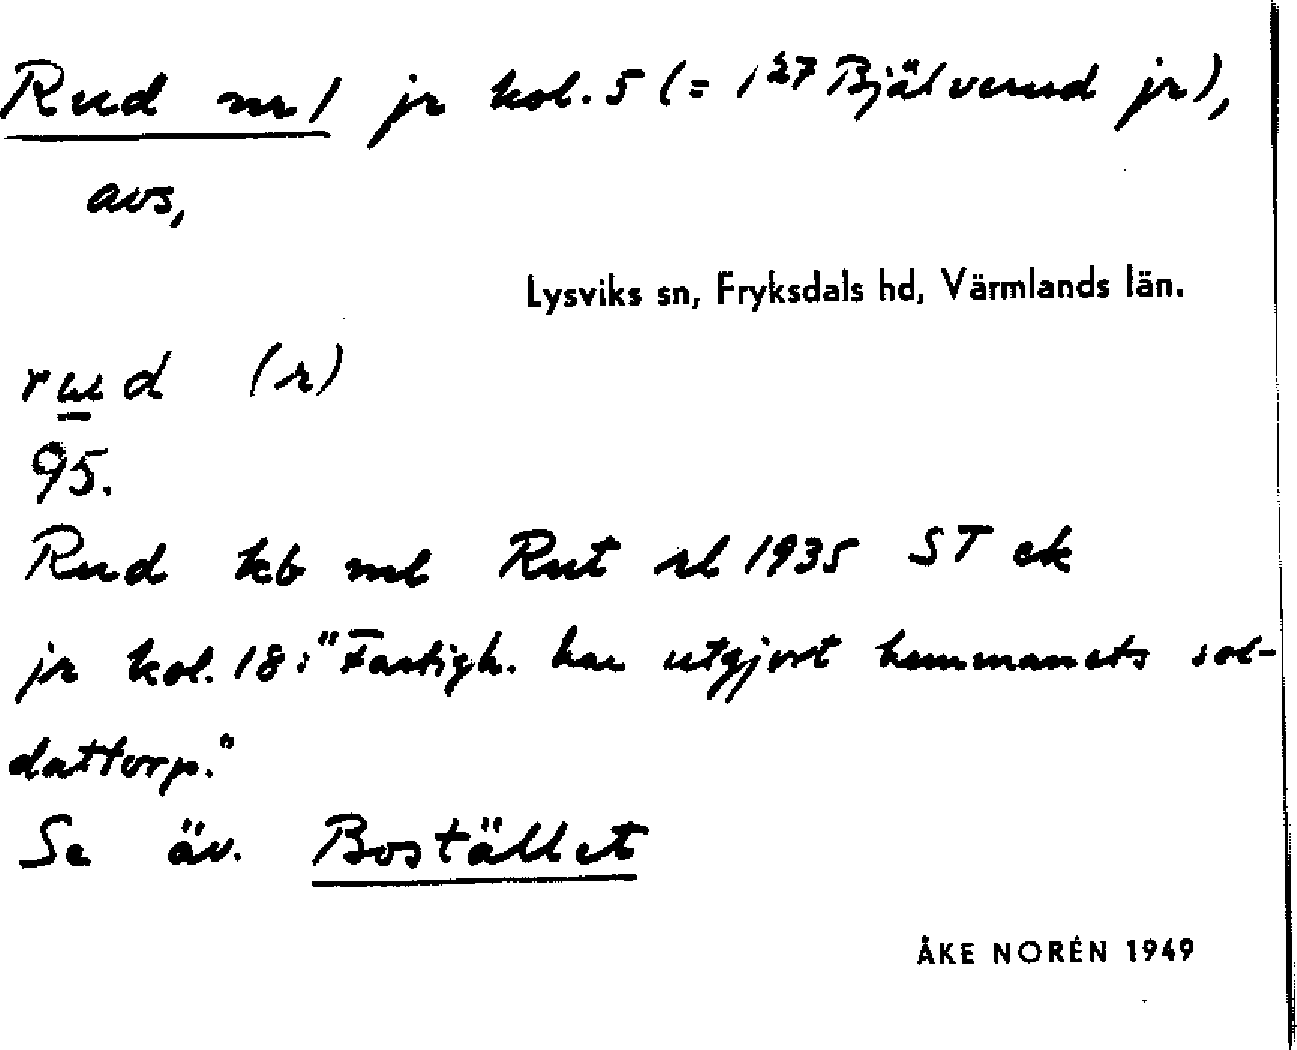 Rud nr 1 jr kol. 5 (= 1²⁷ Bjälverud jr),
avs,
Lysviks sn, Fryksdals hd, Värmlands län.
rud (r)
95.
Rud kb ml Rut rl 1935 ST ek
jr kol. 18: "Fastigh. har utgjort hemmanets sol-
dattorp."
Se äv. Bostället
ÅKE NORÉN 1949